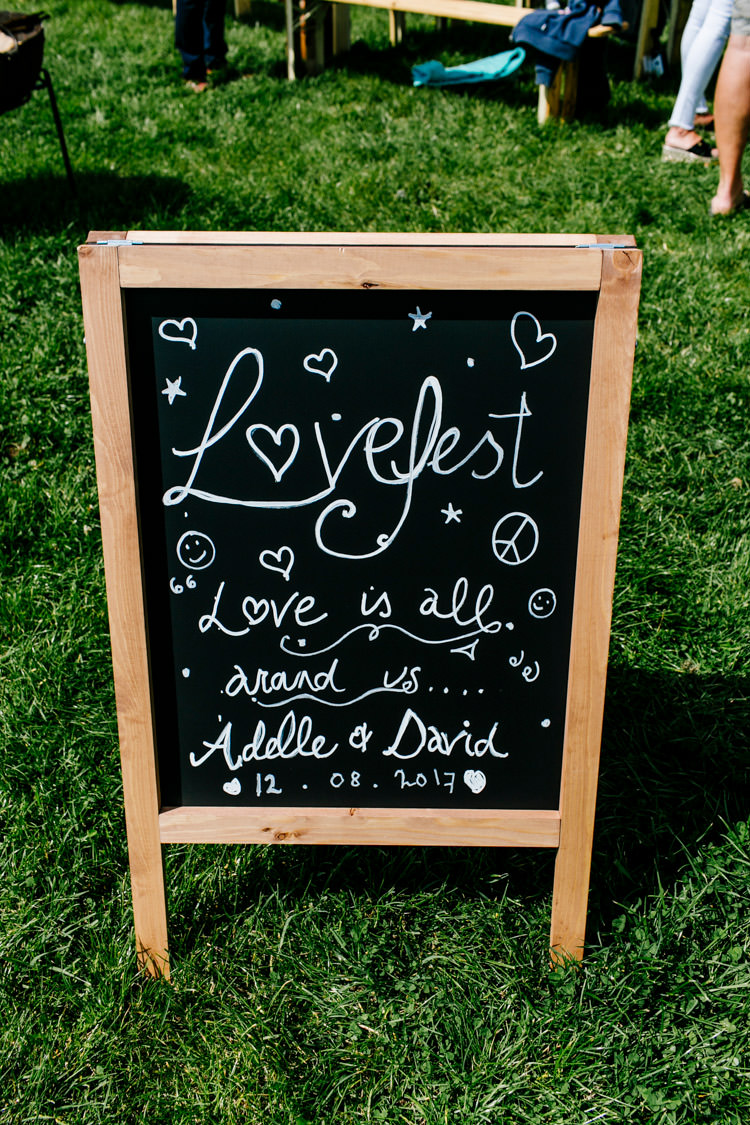 Lovefest
“Love is all.
arand us....”
Adelle & David
12.08.2017